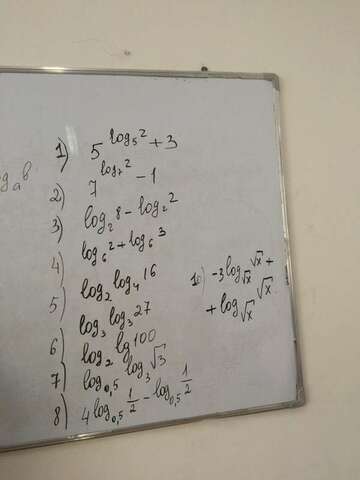 1) 5^{log_5 2} + 3
2) 7^{log_7 2} - 1
3) log_2 8 - log_2 2
4) log_6 2 + log_6 3
5) log_2 log_4 16
6) log_3 log_3 27
7) log_2 lg 100
8) log_{0,5} log_3 √3
4 log_{0,5} 1/2 - log_{0,5} 1/2
log_a b
10) -3 log_{√x} √x +
+ log_{√x} √x